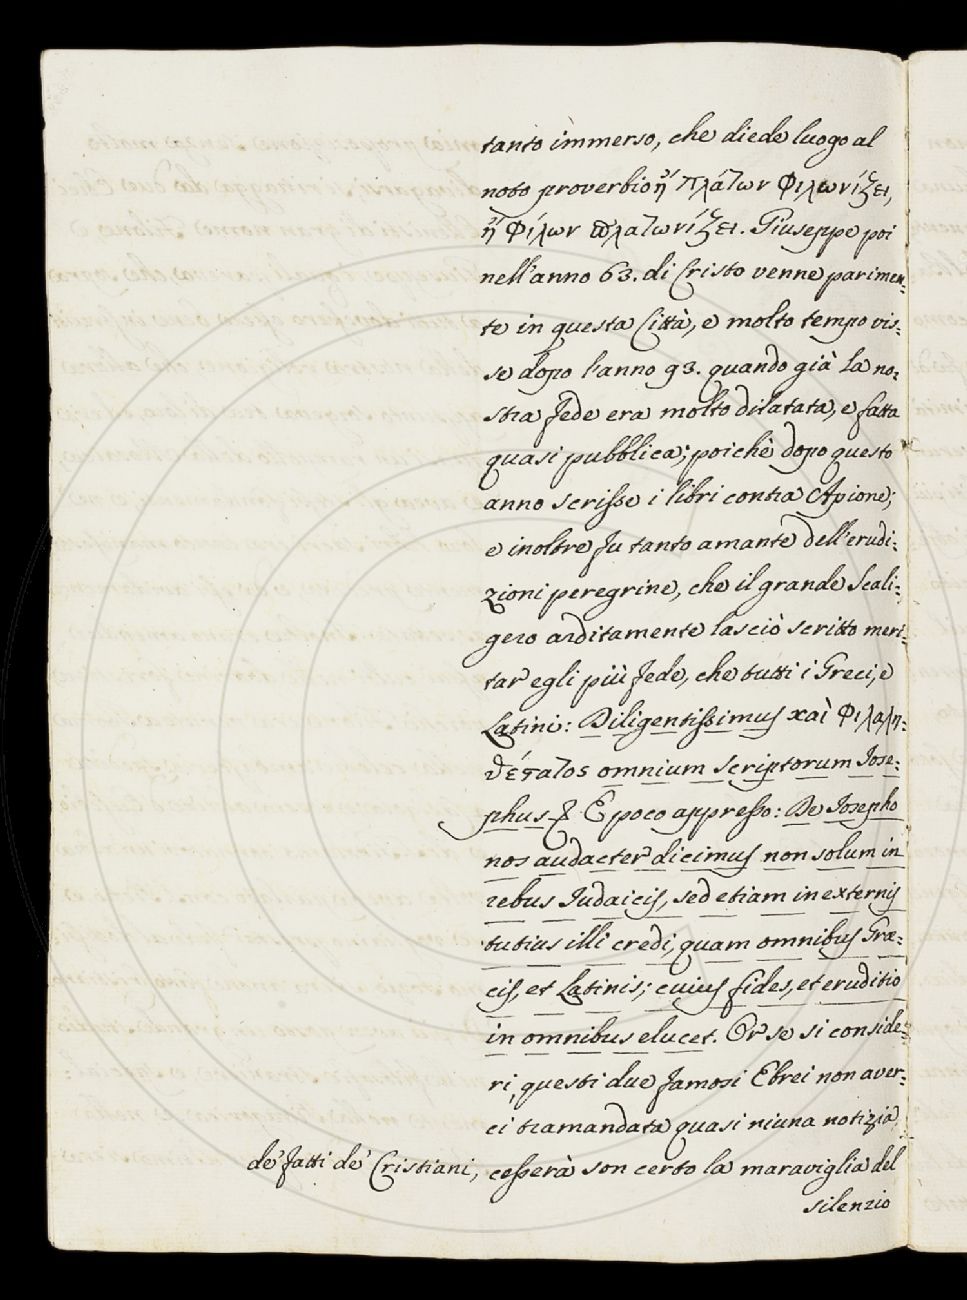 tanto immerso, che diede luogo al
noto proverbio ἢ Πλάτων Φιλωνίζει,
ἢ Φίλων πλατωνίζει. Giuseppe poi
nell'anno 63. di Cristo venne parimen-
te in questa Città, e molto tempo vis-
se dopo l'anno 93. quando già la no-
stra fede era molto dilatata, e fatta
quasi pubblica; poichè dopo questo
anno scrisse i libri contra Apione;
e inoltre fu tanto amante dell'erudi-
zioni peregrine, che il grande Scali-
gero arditamente lasciò scritto meri-
tar egli più fede, che tutti i Greci, e
Latini: Diligentissimus καὶ Φιλαλη-
θέστατος omnium scriptorum Jose-
phus &. E poco appresso: De Josepho
nos audacter dicimus non solum in
rebus Judaicis, sed etiam in externis
tutius illi credi, quam omnibus Græ-
cis, et Latinis; cuius fides, et eruditio
in omnibus elucet. Or se si conside-
ri, questi due famosi Ebrei non aver-
ci tramandata quasi niuna notizia
de' fatti de' Cristiani, cesserà son certo la maraviglia del
silenzio